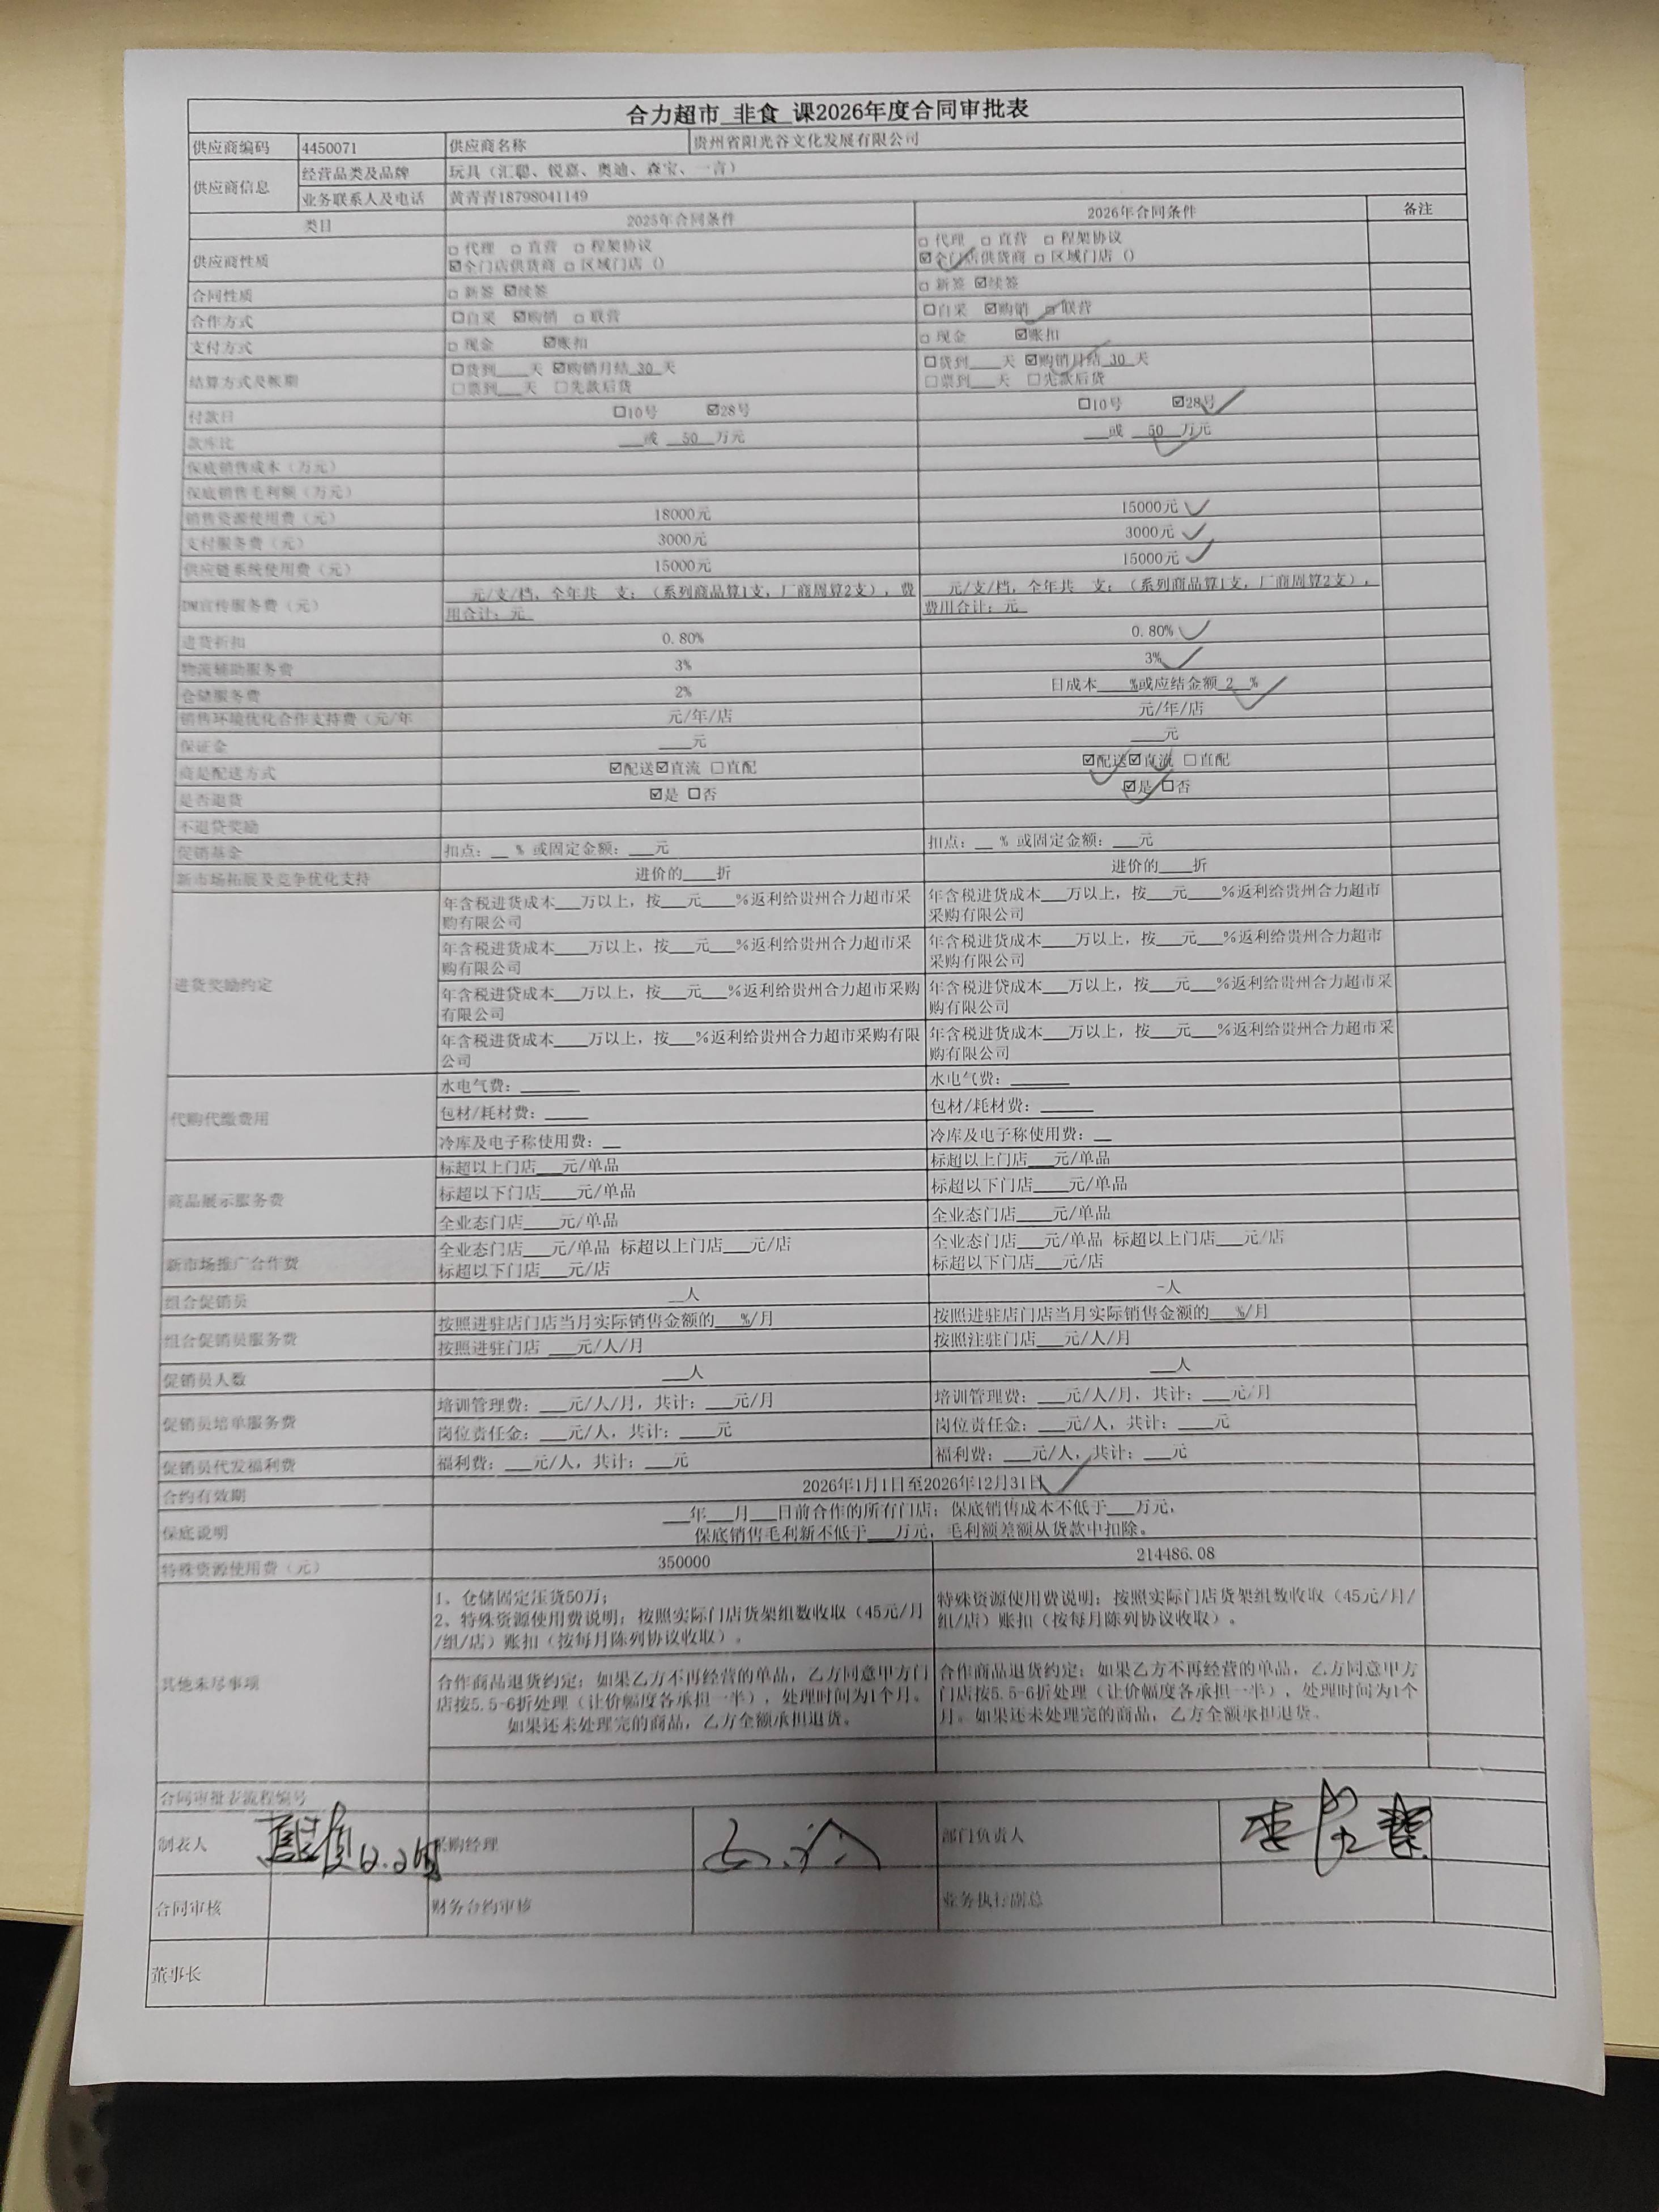 合力超市 非食 课2026年度合同审批表
供应商编码 4450071 供应商名称 贵州省阳光谷文化发展有限公司
供应商信息 经营品类及品牌 玩具（汇聪、锐嘉、奥迪、森宝、一言）
业务联系人及电话 黄青青18798041149
类目 2025年合同条件 2026年合同条件 备注
供应商性质 □ 代理 □ 直营 □ 程架协议 □ 代理 □ 直营 □ 程架协议
☑全门店供货商 □ 区域门店（） ☑全门店供货商 □ 区域门店（）
合同性质 □ 新签 ☑续签 □ 新签 ☑续签
合作方式 □自采 ☑购销 □ 联营 □自采 ☑购销 □ 联营
支付方式 □ 现金 ☑账扣 □ 现金 ☑账扣
结算方式及帐期 □货到___天 ☑购销月结 30 天 □货到___天 ☑购销月结 30 天
□票到___天 □先款后货 □票到___天 □先款后货
付款日 □10号 ☑28号 □10号 ☑28号
款库比 ___或 50 万元 ___或 50 万元
保底销售成本（万元）
保底销售毛利额（万元）
销售资源使用费（元） 18000元 15000元
支付服务费（元） 3000元 3000元
供应链系统使用费（元） 15000元 15000元
DM宣传服务费（元） ___元/支/档，全年共 支；（系列商品算1支，厂商周算2支），费用合计：元 ___元/支/档，全年共 支；（系列商品算1支，厂商周算2支），费用合计：元
进货折扣 0.80% 0.80%
物流辅助服务费 3% 3%
仓储服务费 2% 日成本___%或应结金额 2 %
销售环境优化合作支持费（元/年 元/年/店 元/年/店
保证金 ___元 ___元
商是配送方式 ☑配送☑直流 □直配 ☑配送☑直流 □直配
是否退货 ☑是 □否 ☑是 □否
不退货奖励
促销基金 扣点：__ % 或固定金额：___元 扣点：__ % 或固定金额：___元
新市场拓展及竞争优化支持 进价的___折 进价的___折
进货奖励约定 年含税进货成本___万以上，按___元___%返利给贵州合力超市采购有限公司 年含税进货成本___万以上，按___元___%返利给贵州合力超市采购有限公司
年含税进货成本___万以上，按___元___%返利给贵州合力超市采购有限公司 年含税进货成本___万以上，按___元___%返利给贵州合力超市采购有限公司
年含税进贷成本___万以上，按___元___%返利给贵州合力超市采购有限公司 年含税进贷成本___万以上，按___元___%返利给贵州合力超市采购有限公司
年含税进货成本___万以上，按___%返利给贵州合力超市采购有限公司 年含税进货成本___万以上，按___元___%返利给贵州合力超市采购有限公司
代购代缴费用 水电气费：______ 水电气费：______
包材/耗材费：_____ 包材/耗材费：_____
冷库及电子称使用费：__ 冷库及电子称使用费：__
商品展示服务费 标超以上门店___元/单品 标超以上门店___元/单品
标超以下门店____元/单品 标超以下门店____元/单品
全业态门店____元/单品 全业态门店____元/单品
新市场推广合作费 全业态门店___元/单品 标超以上门店___元/店 全业态门店___元/单品 标超以上门店___元/店
标超以下门店___元/店 标超以下门店___元/店
组合促销员 __人 -人
组合促销员服务费 按照进驻店门店当月实际销售金额的___%/月 按照进驻店门店当月实际销售金额的___%/月
按照进驻门店 ___元/人/月 按照注驻门店___元/人/月
促销员人数 ___人 ___人
促销员培单服务费 培训管理费：___元/人/月，共计：___元/月 培训管理费：___元/人/月，共计：___元/月
岗位责任金：___元/人，共计：____元 岗位责任金：___元/人，共计：____元
促销员代发福利费 福利费：___元/人，共计：___元 福利费：___元/人，共计：___元
合约有效期 2026年1月1日至2026年12月31日
保底说明 ___年___月___日前合作的所有门店；保底销售成本不低于___万元，
保底销售毛利新不低于___万元，毛利额差额从货款中扣除。
特殊资源使用费（元） 350000 214486.08
其他未尽事项 1、仓储固定压货50万；
2、特殊资源使用费说明；按照实际门店货架组数收取（45元/月/组/店）账扣（按每月陈列协议收取）。 特殊资源使用费说明；按照实际门店货架组数收取（45元/月/组/店）账扣（按每月陈列协议收取）。
合作商品退货约定：如果乙方不再经营的单品，乙方同意甲方门店按5.5-6折处理（让价幅度各承担一半），处理时间为1个月。如果还未处理完的商品，乙方全额承担退货。 合作商品退货约定；如果乙方不再经营的单品，乙方同意甲方门店按5.5-6折处理（让价幅度各承担一半），处理时间为1个月。如果还未处理完的商品，乙方全额承担退货。
合同审批表流程编号
制表人 采购经理 部门负责人
合同审核 财务合约审核 业务执行副总
董事长